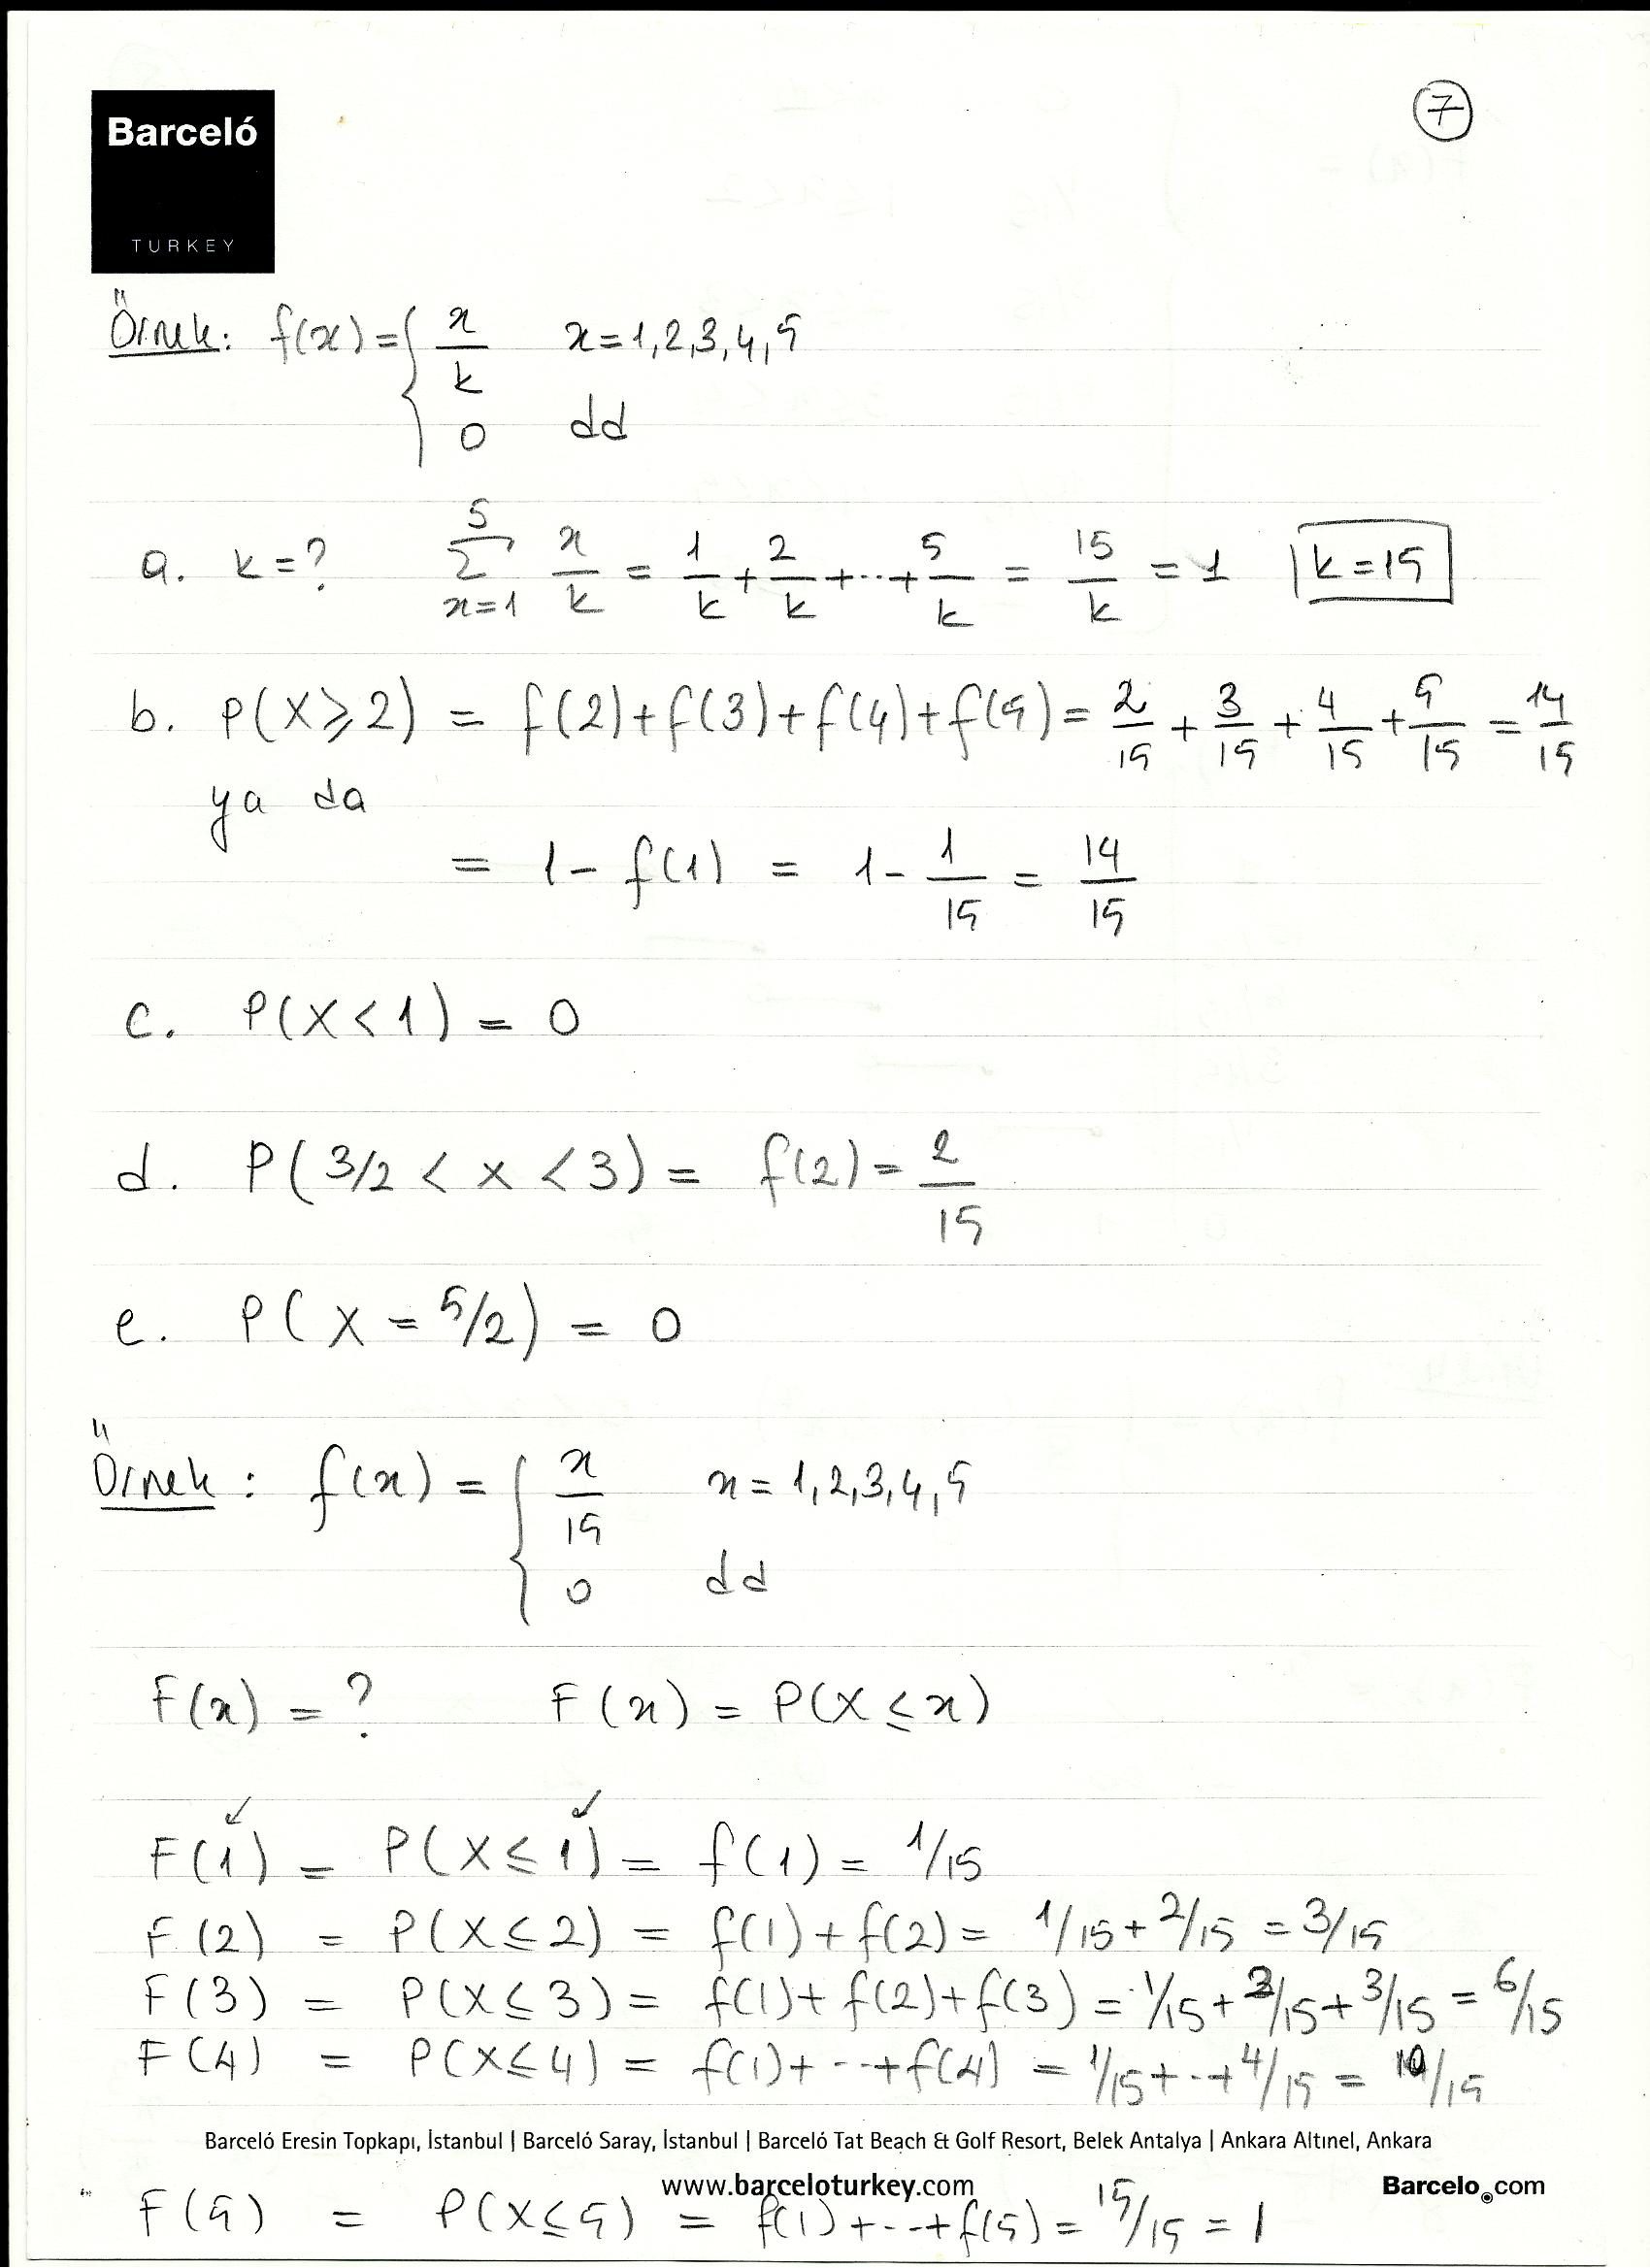 7
Barceló
TURKEY
Örnek: f(x) = { x/k   x = 1, 2, 3, 4, 5
0   dd
a. k = ?   5 Σ x=1 x/k = 1/k + 2/k + ... + 5/k = 15/k = 1   k = 15
b. P(X ⩾ 2) = f(2) + f(3) + f(4) + f(5) = 2/15 + 3/15 + 4/15 + 5/15 = 14/15
ya da
= 1 - f(1) = 1 - 1/15 = 14/15
c. P(X < 1) = 0
d. P(3/2 < x < 3) = f(2) = 2/15
e. P(X = 5/2) = 0
Örnek: f(x) = { x/15   x = 1, 2, 3, 4, 5
0   dd
F(x) = ?   F(x) = P(X ≤ x)
F(1) = P(X ≤ 1) = f(1) = 1/15
F(2) = P(X ≤ 2) = f(1) + f(2) = 1/15 + 2/15 = 3/15
F(3) = P(X ≤ 3) = f(1) + f(2) + f(3) = 1/15 + 2/15 + 3/15 = 6/15
F(4) = P(X ≤ 4) = f(1) + ... + f(4) = 1/15 + ... + 4/15 = 10/15
Barceló Eresin Topkapı, İstanbul | Barceló Saray, İstanbul | Barceló Tat Beach & Golf Resort, Belek Antalya | Ankara Altınel, Ankara
www.barceloturkey.com   Barcelo.com
F(5) = P(X ≤ 5) = f(1) + ... + f(5) = 15/15 = 1